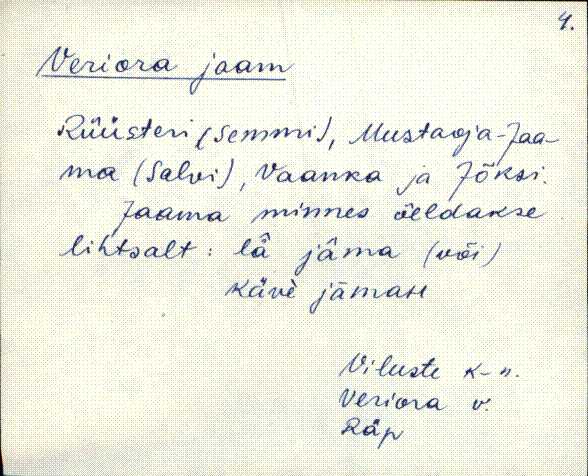 4.
Veriora jaam
Rüüsteri (Semmi), Mustaoja-Jaa-
ma (Salvi), Vaanka ja Jõksi.
Jaama minnes öeldakse
lihtsalt: lǟ jāma (või)
kävè jāmaн
Viluste k-n.
Veriora v.
Räp